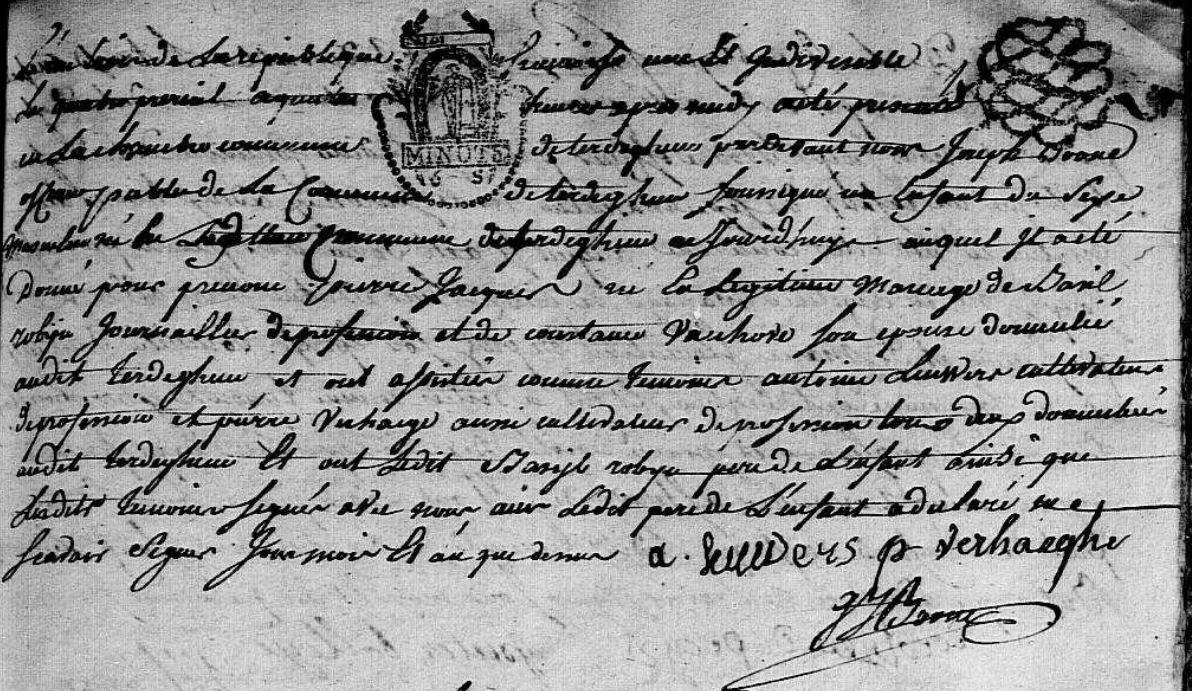 de la république française une et indivisible
Le quatre prerial a quatre heures apres midy a eté presenté
en La chambre commune de terdeghem pardevant nous Joseph
officier public de La Commune de terdeghem soussigné un Enfant de Sexe
masculin né en Laditte Commune de terdeghem aujourdhuy auquel Il a eté
Donné pour prenoms pierre Jacques né en Legitime Mariage de Basil
robyn Journaillier de profession et de constance Vanhove son epouse domicilié
audit terdeghem et ont assistés comme temoins antoine Leuwers cultivateur
de profession et pierre Verhaege aussi cultivateur de profession tous deux domiciliés
audit terdeghem Et ont Ledit Basijl robyn pere de L'enfant ainsi que
Lesdits temoins signés avec nous Ledit pere de L'enfant a declaré ne
scavoir Signer Jour mois Et an que dessus a. Leuwers p verhaeghe
MINUTE